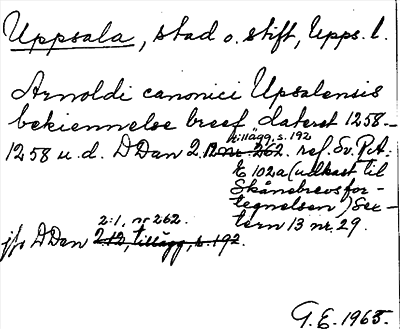 Uppsala, stad o. stift, Upps. l.
Arnoldi canonici Upsalensis
bekiennelse breef daterst 1258.-
tillägg, s. 192
1258 u.d. DDan 2,12 nr. 262. ref. Sv. R.A.
E 102a (utkast til
Skånebrevsfor-
tegnelsen) Sex-
tern 13 nr. 29.
2:1, nr 262.
jfr DDan 2,12, tillägg, s. 192.
G.E. 1965.